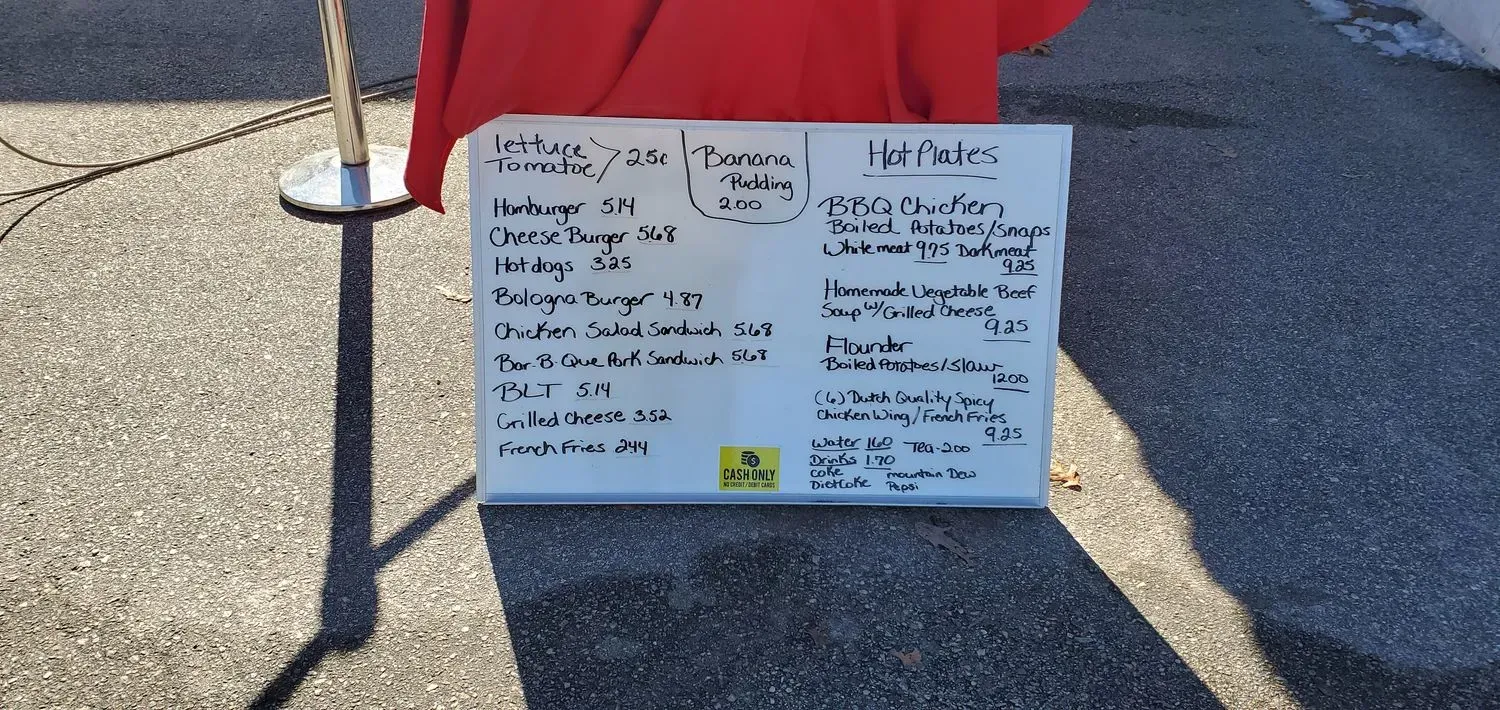 lettuce
Tomatoe 25¢
Hamburger 5.14
Cheese Burger 5.68
Hotdogs 3.25
Bologna Burger 4.87
Chicken Salad Sandwich 5.68
Bar-B-Que Pork Sandwich 5.68
BLT 5.14
Grilled Cheese 3.52
French Fries 2.44
Banana
Pudding
2.00
CASH ONLY
NO CREDIT / DEBIT CARDS
Hot Plates
BBQ Chicken
Boiled Potatoes/Snaps
White meat 9.75 Dark meat
9.25
Homemade Vegetable Beef
Soup w/Grilled Cheese
9.25
Flounder
Boiled Potatoes/Slaw
12.00
(6) Dutch Quality Spicy
Chicken Wing/French Fries
9.25
Water 1.60 Tea-2.00
Drinks 1.70
Coke mountain Dew
Diet Coke Pepsi